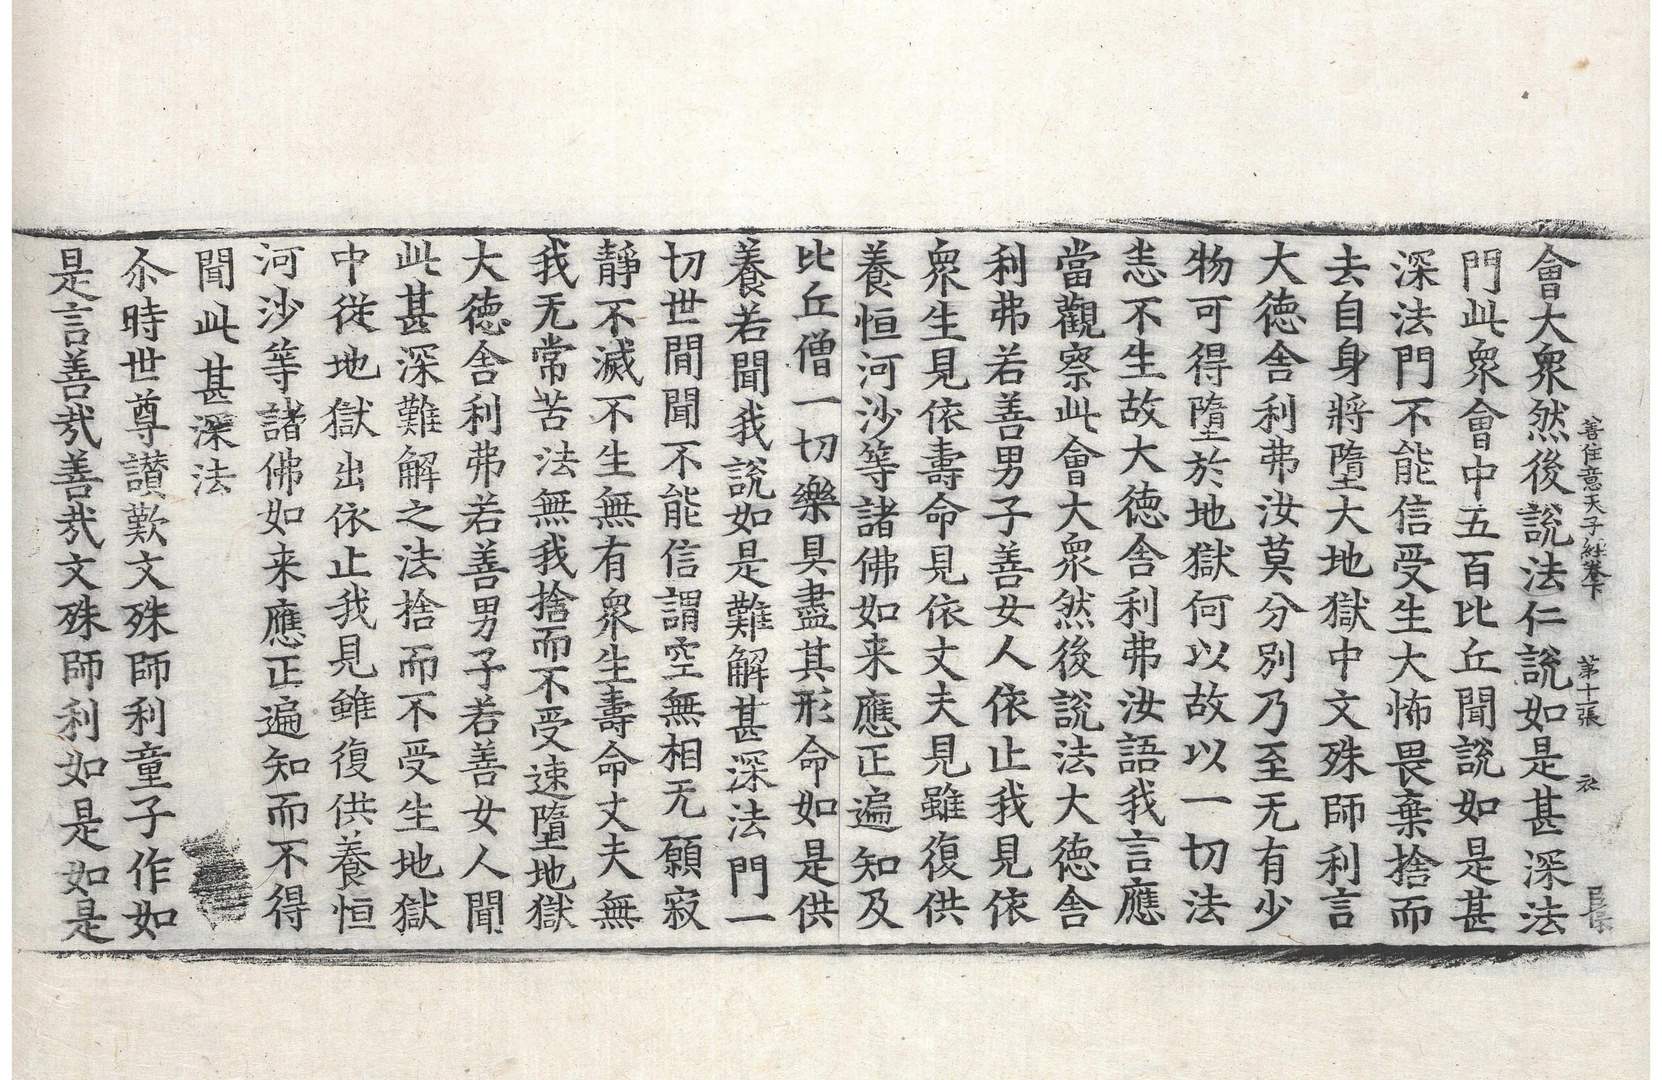 善住意天子経卷下　第十二張　社
會大衆然後說法仁說如是甚深法
門此衆會中五百比丘聞說如是甚
深法門不能信受生大怖畏棄捨而
去自身將墮大地獄中文殊師利言
大德舍利弗汝莫分別乃至无有少
物可得墮於地獄何以故以一切法
悉不生故大德舍利弗汝語我言應
當觀察此會大衆然後說法大德舍
利弗若善男子善女人依止我見依
衆生見依壽命見依丈夫見雖復供
養恒河沙等諸佛如来應正遍知及
比丘僧一切樂具盡其形命如是供
養若聞我說如是難解甚深法門一
切世間聞不能信謂空無相无願寂
靜不滅不生無有衆生壽命丈夫無
我无常苦法無我捨而不受速墮地獄
大德舍利弗若善男子若善女人聞
此甚深難解之法捨而不受生地獄
中從地獄出依止我見雖復供養恒
河沙等諸佛如来應正遍知而不得
聞此甚深法
尒時世尊讃歎文殊師利童子作如
是言善哉善哉文殊師利如是如是